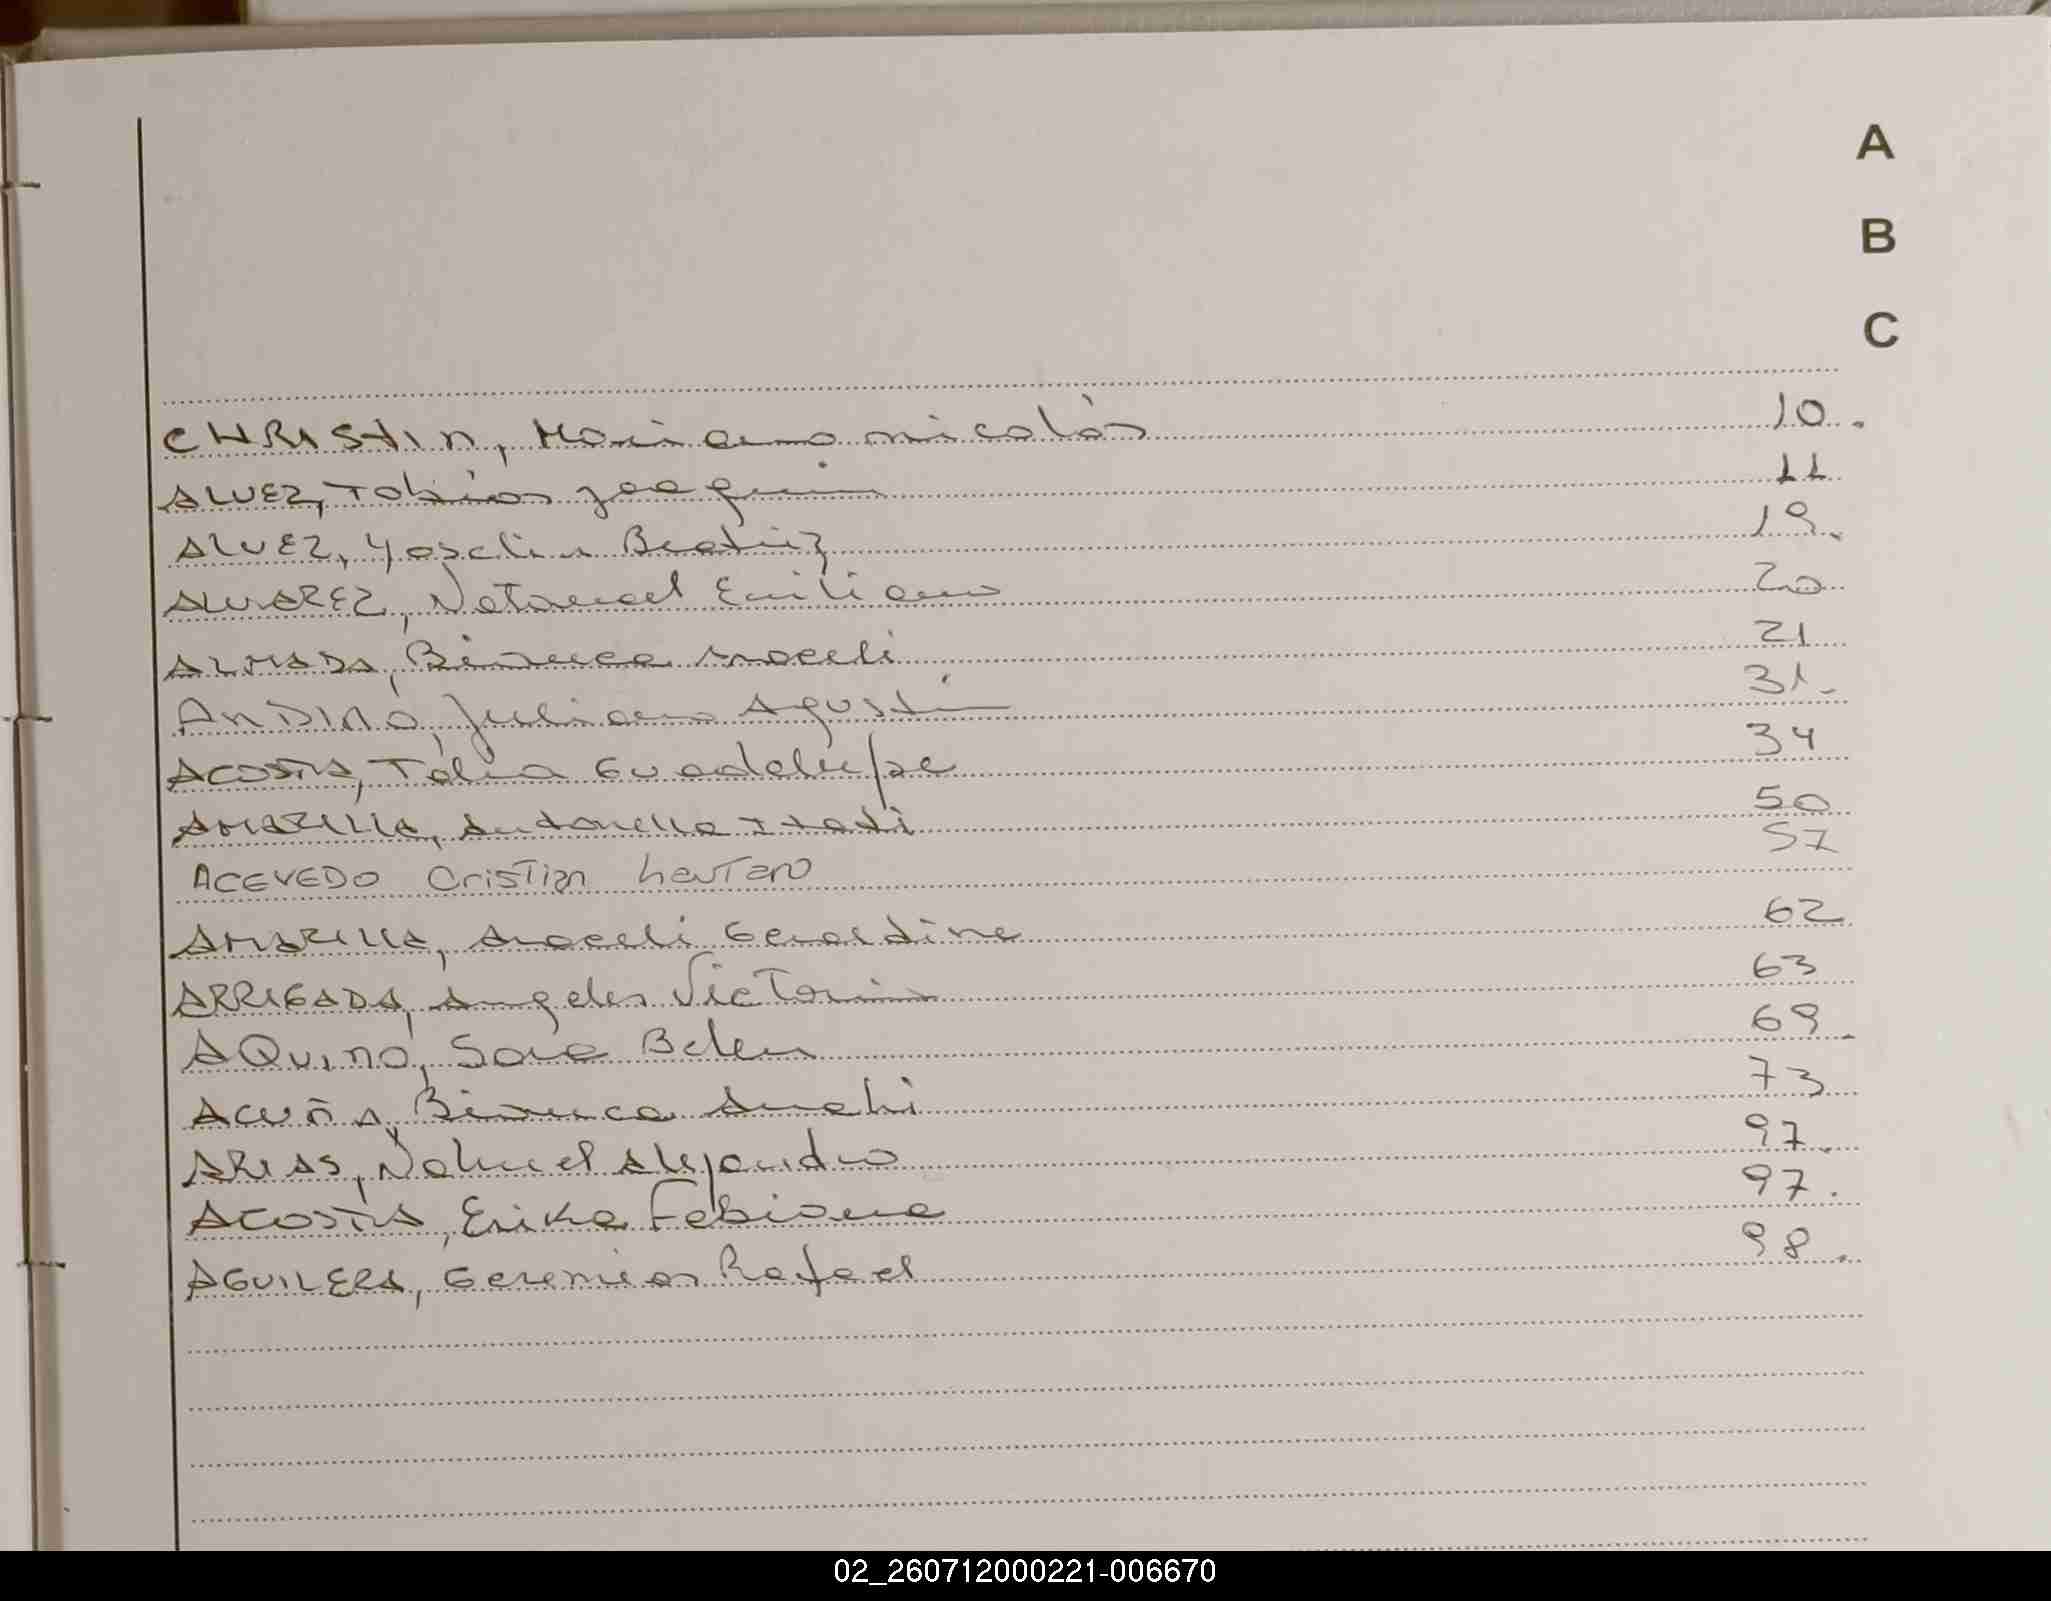 A
B
C
CHRISTIN, Mariano nicolás 10.
ALVEZ, Tobías Joaquín 11
ALVEZ, Yoselin Beatriz 19.
ALVAREZ, Natanael Emiliano 20
ALMADA, Bianca Araceli 21
ANDINO, Juliano Agustín 31.
ACOSTA, Guadalupe 34
AMARILLA, Antonella Itatí 50
ACEVEDO Cristian Lautaro 57
AMARILLA, Araceli Geraldine 62
ARRIGADA, Angeles Victoria 63
AQUINO, Sara Belen 69.
ACUÑA, Bianca Anahi 73
ARIAS, Nahuel Alejandro 97.
ACOSTA, Erika Fabiana 97.
AGUILERA, Geremias Rafael 98.
02_260712000221-006670